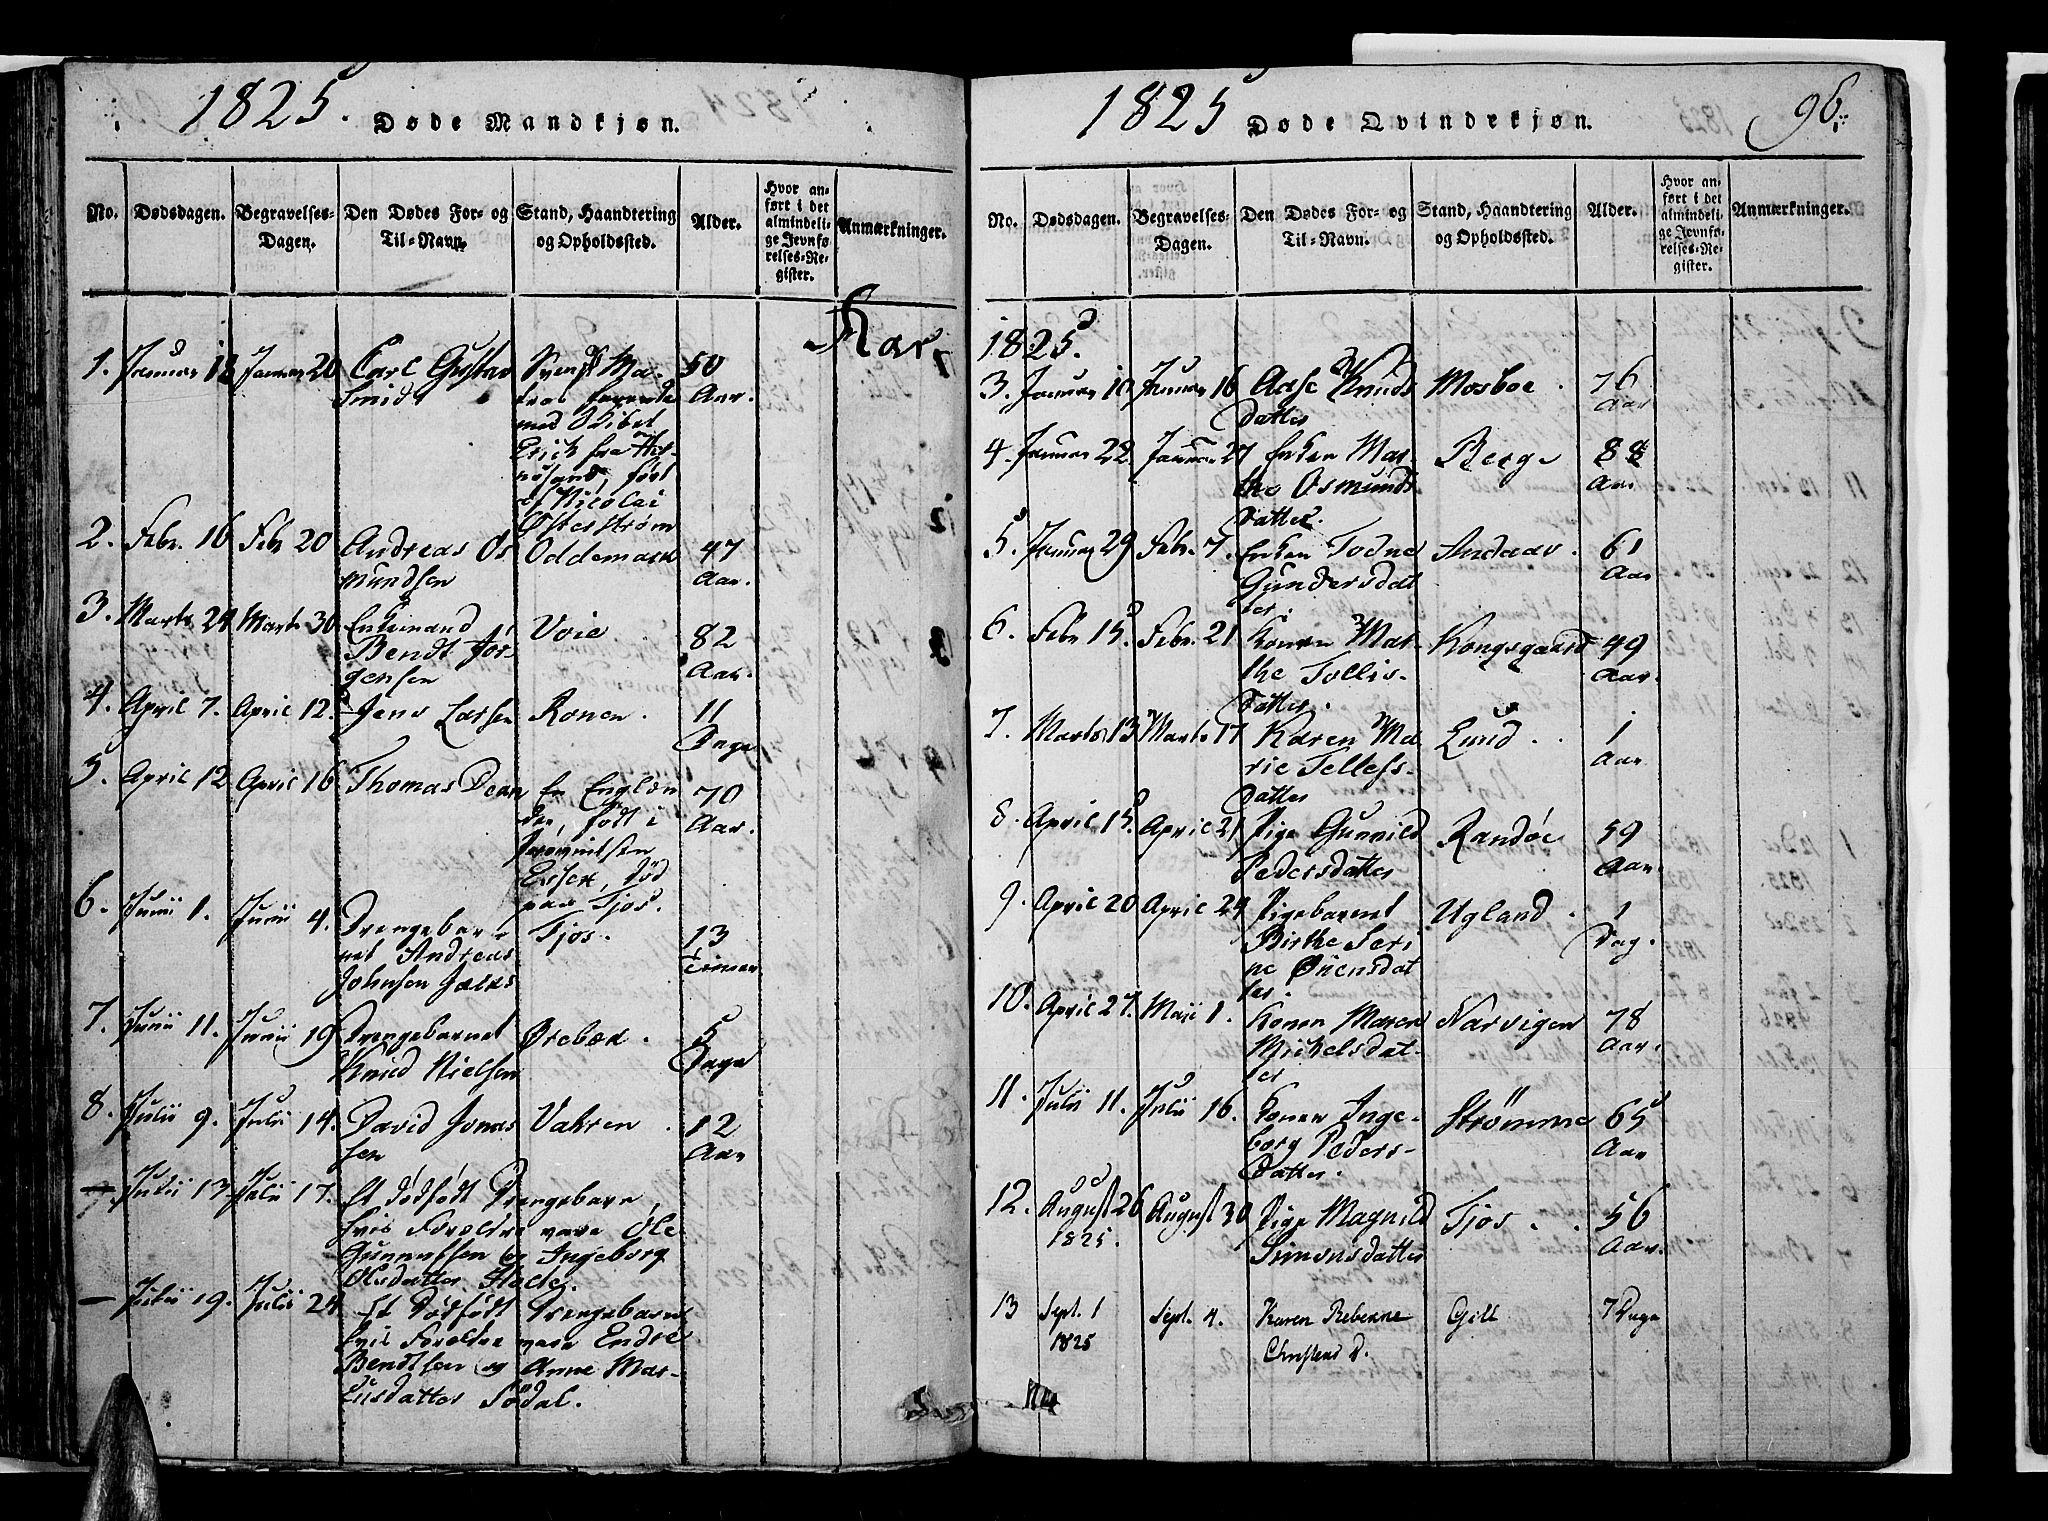 1825.
Døde Mandkjøn.
No.
Dødsdagen.
Begravelses-
Dagen.
Den Dødes For- og
Til-Navn.
Stand, Haandtering
og Opholdssted.
Alder.
Hvor an-
ført i det
almindeli-
ge Jevnfø-
relses-Re-
gister.
Anmærkninger.
1. Januar 18 Januar 20 Carl Gustav
Smid
Svensk Ma-
tros
med
Erick fra Her-
nøsand, ført
af Nicolai
Østerstrøm
50
Aar.
2. Febr. 16 Febr 20 Andreas Os
mundsen
Oddemark 47
Aar.
3. Marts 24 Marts 30 Enkemand
Bendt Jør-
gensen
Voie 82
Aar.
4. April 7. April 12. Jens Larsen Ronen. 11
Dage
5. April 12 April 16 Thomas Dean En Englæn
der, født i
Essex, død
paa Tjos.
70
Aar.
6. Junii 1. Junii 4. Drengebar-
net Andreas
Johnsen
Tjos. 13
Timer
7. Junii 11. Junii 19 Drengebarnet
Knud Nielsen
Ørebæk. 5
Dage
8. Julii 9. Julii 14. David Jonas
sen
Vahren. 12
Aar
— Julii 13 Julii 17. Et dødfødt Drengebarn,
hvis Forældre vare Ole
Gunnufsen og Ingeborg
Olsdatter
— Julii 19. Julii 24 Et dødfødt Drengebarn
hvis Forældre vare Endre
Bendtsen og Anne Mar-
cusdatter Sødal.
1825
Døde Qvindekjøn.
96.
No.
Dødsdagen.
Begravelses-
Dagen.
Den Dødes For- og
Til-Navn.
Stand, Haandtering
og Opholdssted.
Alder.
Hvor an-
ført i det
almindeli-
ge Jevnfø-
relses-Re-
gister.
Anmærkninger.
1825.
3. Januar 10 Januar 16 Aase Knuds
Datter
Mosboe. 76
Aar
4. Januar 22. Januar 27 Enken Mar
the Osmunds
Datter.
Berge 88
Aar
5. Januar 29 Febr. 7. Enken Todne
Gundersdat
ter.
Andaas. 61
Aar
6. Febr 15 Febr. 21 Konen Mar-
the Tollis-
Datter.
Kongsgaard 49
Aar.
7. Marts 13 Marts 17 Karen Ma
rie Tellefs-
Datter
Lund. 1
Aar
8. April 15. April 21 Pige Gunnild
Pedersdatter
Randøe 59
Aar.
9. April 20 April 24 Pigebarnet
Birthe Seri
ne Øiensdat
ter.
Ugland. 1
Dag.
10. April 27. Maii 1. Konen Maren
Mickelsdat-
ter
Narvigen 78
Aar.
11. Julii 11. Julii 16. Konen Inge-
borg Peders-
Datter.
Strømme 65
Aar
12. August 26
1825.
August 30 Pige Magnild
Simonsdatter
Tjos. 56
Aar.
13 Sept. 1
1825
Sept. 4. Karen Rebekke
Christens D.
Gill 7 Dage